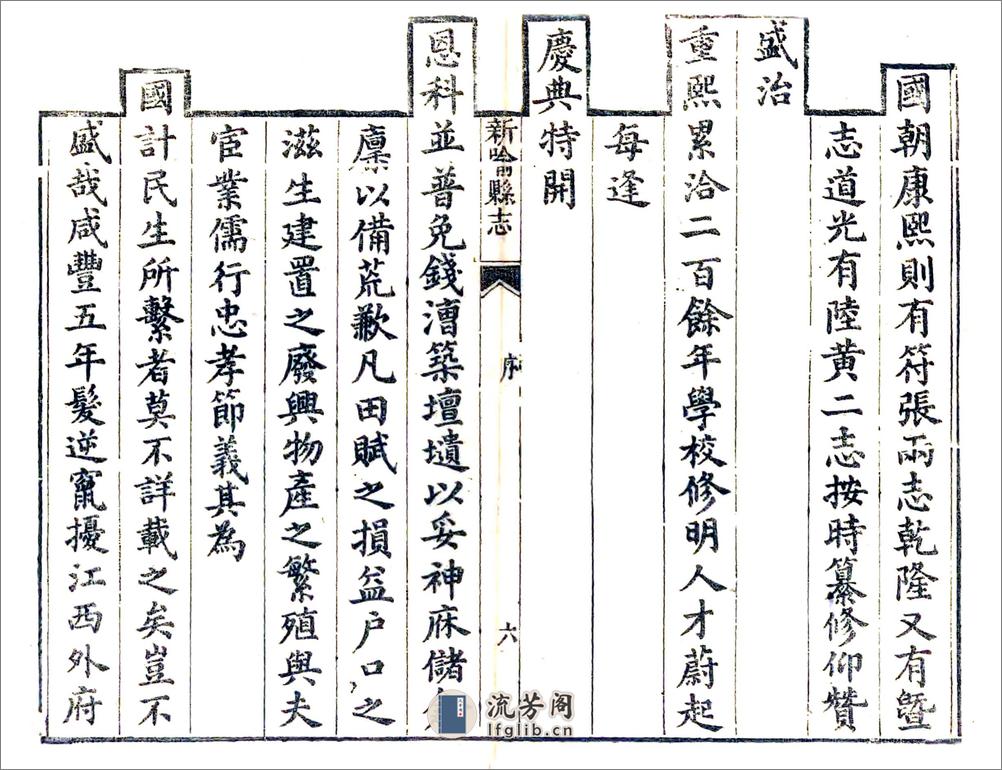 國朝康熙則有符張兩志乾隆又有暨
志道光有陸黄二志按時纂修仰贊
盛治
重熙累洽二百餘年學校修明人才蔚起
每逢
慶典特開
新喻縣志
序
六
恩科並普免錢漕築壇壝以妥神庥儲
廩以備荒歉凡田賦之損益户口之
滋生建置之廢興物產之繁殖與夫
宦業儒行忠孝節義其為
國計民生所繫者莫不詳載之矣豈不
盛哉咸豐五年髮逆竄擾江西外府
流芳阁
lfglib.cn